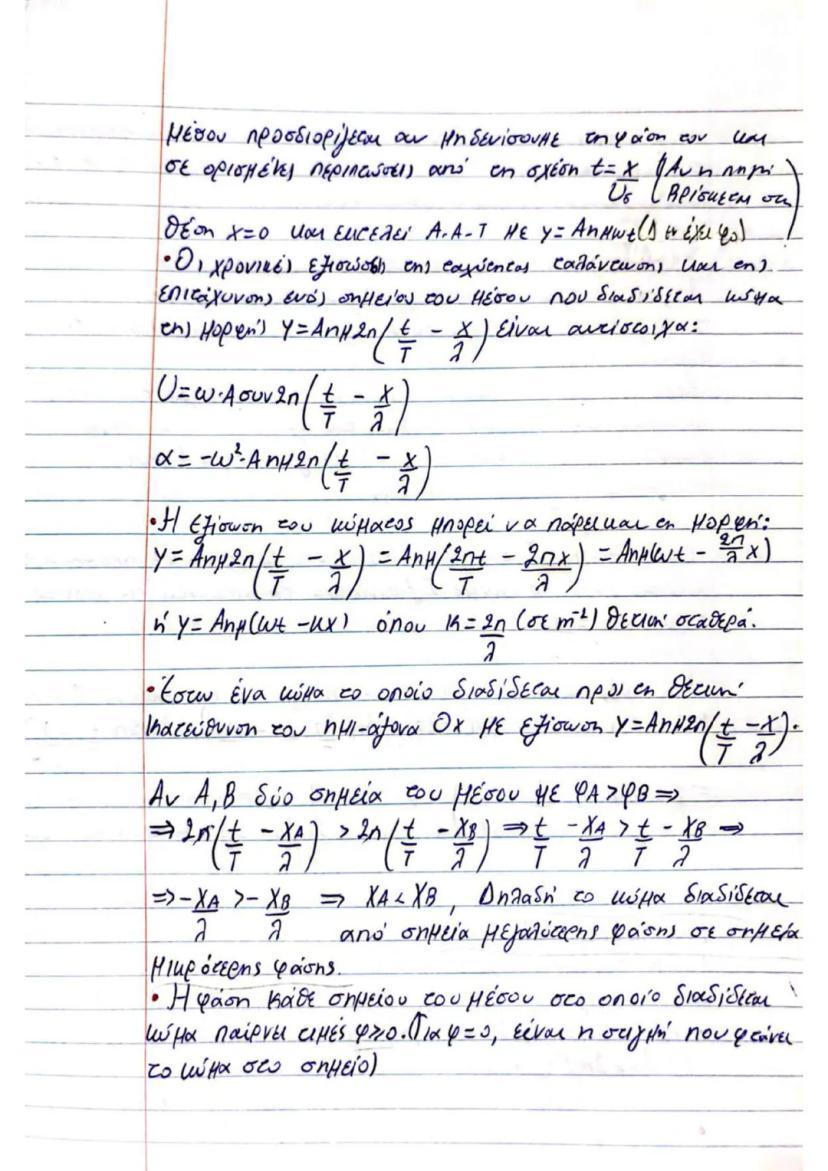 μέσου προσδιορίζεται αν μηδενίσουμε τη φάση του και
σε ορισμένες περιπτώσεις από τη σχέση t = x/υδ (Αν η πηγή βρίσκεται στη
θέση x=0 και εκτελεί Α.Α.Τ με y = Aημωt (Δεν έχει φ0)
• Οι χρονικές εξισώσεις της ταχύτητας ταλάντωσης και της
επιτάχυνσης ενός σημείου του μέσου που διαδίδεται κύμα
της μορφής y = Aημ2π(t/T - x/λ) είναι αντίστοιχα:
υ = ω·Aσυν2π(t/T - x/λ)
α = -ω²·Aημ2π(t/T - x/λ)
• Η εξίσωση του κύματος μπορεί να πάρει και τη μορφή:
y = Aημ2π(t/T - x/λ) = Aημ(2πt/T - 2πx/λ) = Aημ(ωt - 2π/λ x)
ή y = Aημ(ωt - κx) όπου κ = 2π/λ (σε m⁻¹) θετική σταθερά.
• Έστω ένα κύμα το οποίο διαδίδεται προς τη θετική
κατεύθυνση του ημι-άξονα Οx με εξίσωση y = Aημ2π(t/T - x/λ).
Αν Α, Β δύο σημεία του μέσου με φA > φB ⇒
⇒ 2π(t/T - xA/λ) > 2π(t/T - xB/λ) ⇒ t/T - xA/λ > t/T - xB/λ ⇒
⇒ -xA/λ > -xB/λ ⇒ xA < xB, Δηλαδή το κύμα διαδίδεται
από σημεία μεγαλύτερης φάσης σε σημεία
μικρότερης φάσης.
• Η φάση κάθε σημείου του μέσου στο οποίο διαδίδεται
κύμα παίρνει τιμές φ≥0. (Για φ=0, είναι η στιγμή που φτάνει
το κύμα στο σημείο)